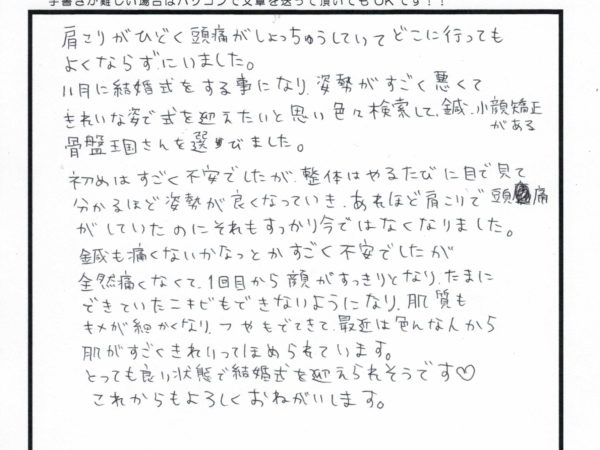 手書きが難しい場合はパソコンで文章を送って頂いてもOKです！！
肩こりがひどく頭痛がしょっちゅうしていてどこに行っても
よくならずにいました。
11月に結婚式をする事になり、姿勢がすごく悪くて
きれいな姿で式を迎えたいと思い色々検索して、鍼、小顔矯正
がある
骨盤王国さんを選びました。
初めはすごく不安でしたが、整体はやるたびに目で見て
分かるほど姿勢が良くなっていき、あれほど肩こりで頭痛
がしていたのにそれもすっかり今ではなくなりました。
鍼も痛くないかなっとかすごく不安でしたが
全然痛くなくて、1回目から顔がすっきりとなり、たまに
できていたニキビもできないようになり、肌質も
キメが細かくなり、つやもでてきて、最近は色んな人から
肌がすごくきれいってほめられています。
とっても良い状態で結婚式を迎えられそうです♡
これからもよろしくおねがいします。